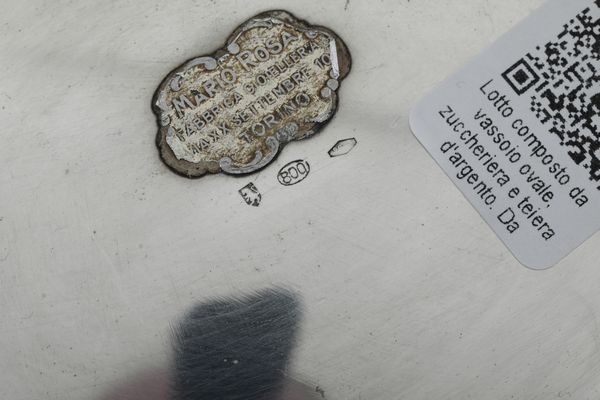 MARIO ROSA
FABBRICA GIOIELLERIA
SETTEMBRE 10
TORINO
800
Lotto composto da
vassoio ovale,
zuccheriera e teiera
d'argento. Da